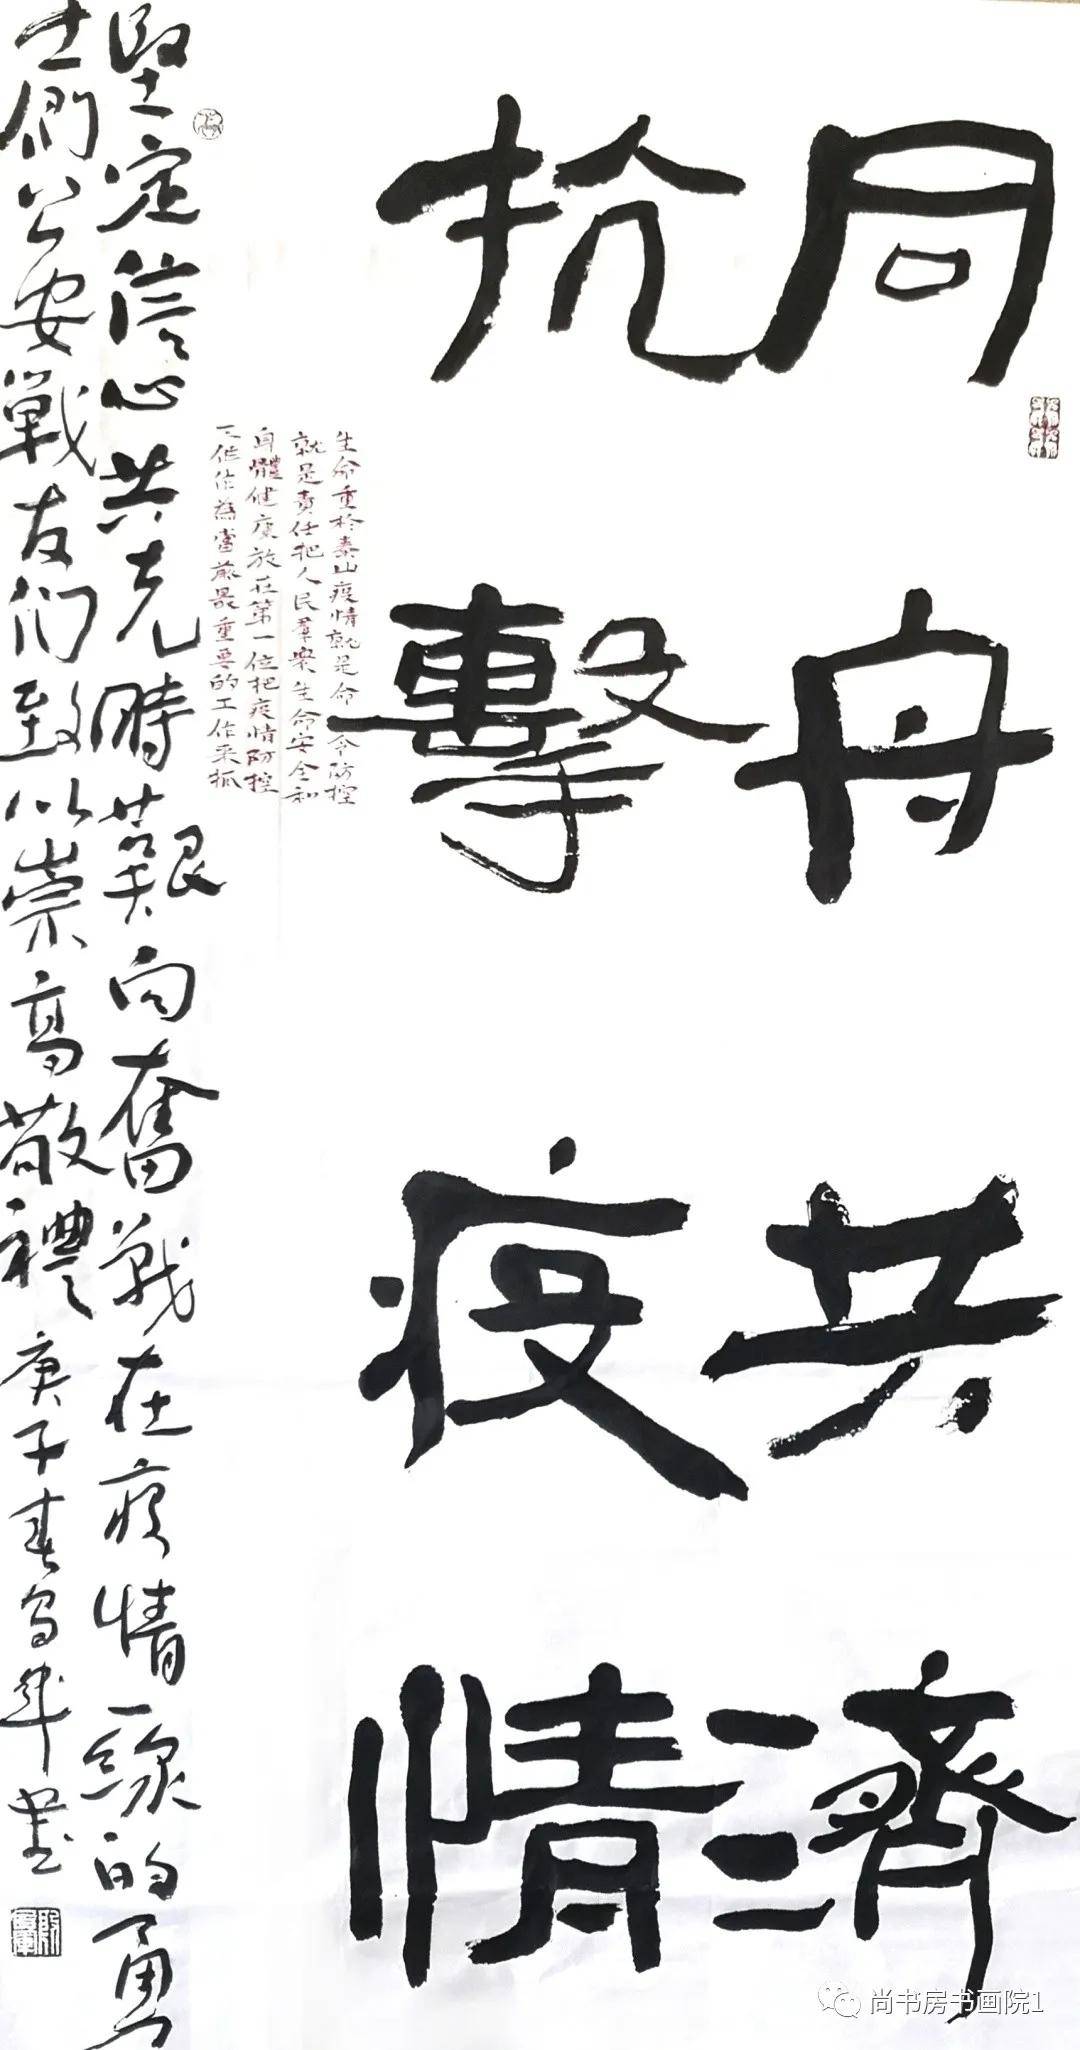 同舟共濟
抗擊疫情
生命重於泰山疫情就是命令防控
就是責任把人民羣衆生命安全和
身體健康放在第一位把疫情防控
工作作為當前最重要的工作来抓
堅定信心共克時艱向奮战在疫情一線的勇
士們公安戰友们致以崇高敬禮庚子春
書
尚书房书画院1